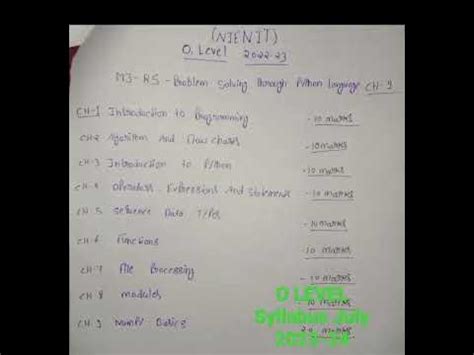 (NIENIT)
O. Level 2022-23
M3-R5 - Problem Solving through Python Language CH-9
CH-1 Introduction to Programming - 10 marks
CH-2 Algorithm And Flow Charts - 10 marks
CH-3 Introduction to Python - 10 marks
CH-4 Expressions And Statements - 10 marks
CH-5 Sequence Data Types - 10 marks
CH-6 Functions 10 marks
CH-7 File Processing - 10 marks
CH 8 modules - 10 marks
CH 9 Basics 20 marks
O LEVEL
Syllabus July